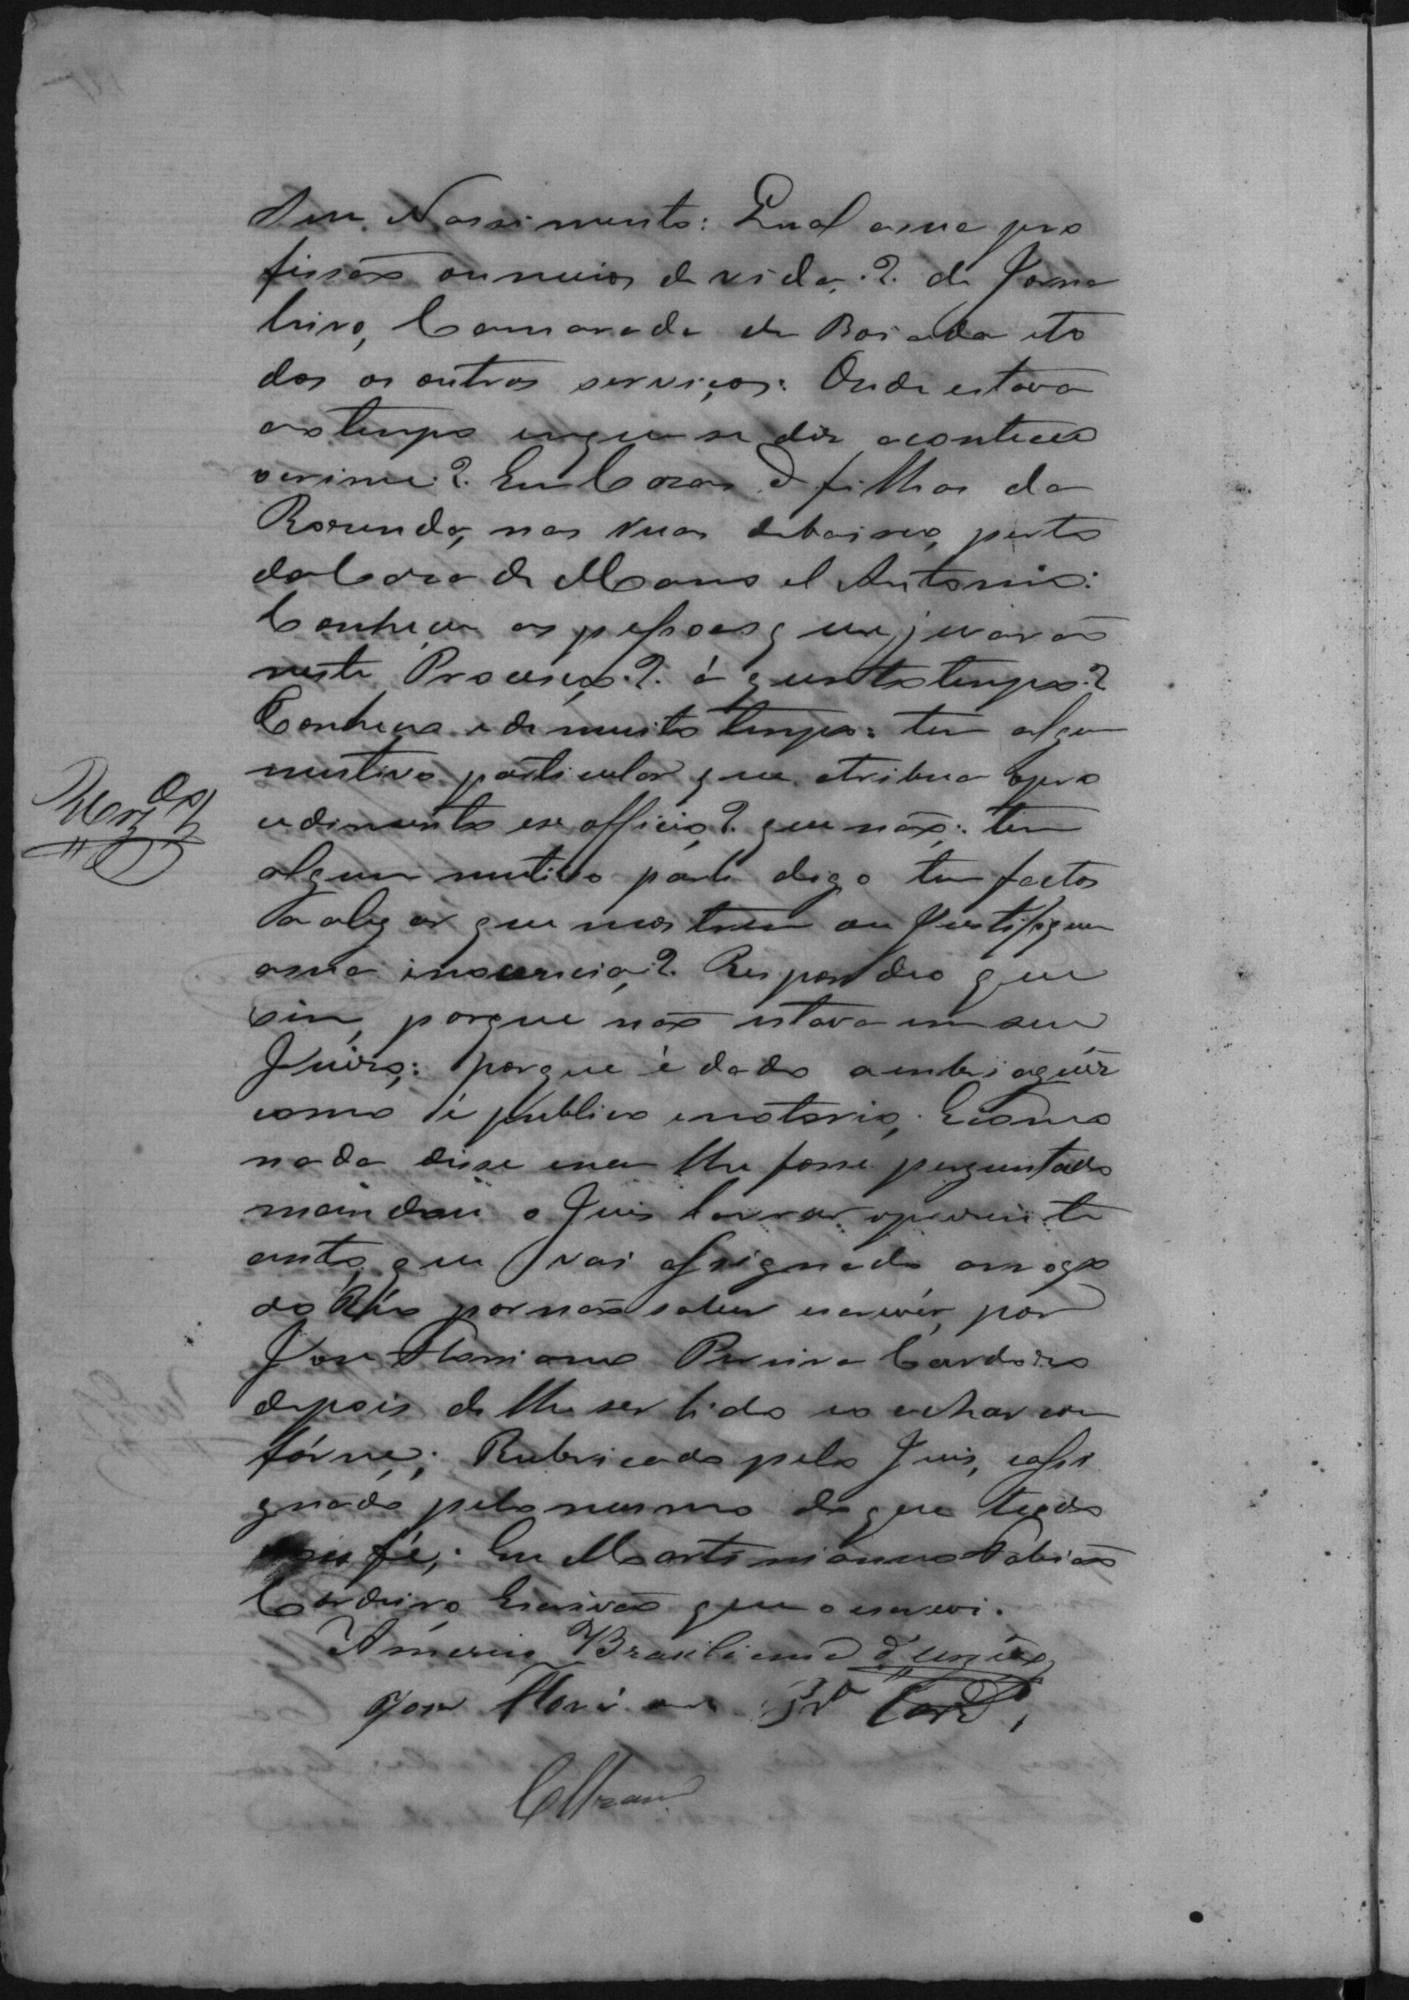 seu Nassimento: Qual a sua pro
fissão ou meios de vida.? de Jorna
leiro, Camarada de Boiada e to
dos os outros serviços: Onde estava
ao tempo em que se diz aconteceo
o crime? Em Casa d filhas da
Rozenda, nas ruas debaixo, perto
da Casa de Manoel Antonio:
Conheçia as pessoas que juraraõ
neste Processo.? á quanto tempo.?
Conheçe e de muito tempo: tem algum
mutivo particular que atribua o pro
cedimento ex officio? que não: tem
algum mutivo parti digo tem factos
a alegar que mostrem ou Justifiquem
a sua inocencia? Respondeo que
sim, porque não estava em seu
Juizo; porque é dado a embriaguêz
como é publico e notorio, E como
nada disse e nem lhe fosse perguntado
mandou o Juis lavrar o presente
auto, que vai assignado a rogo
do Réo por não saber escrevêr, por
Jose Floriano Pereira Cardozo
depois de lhe ser lido e o achar con
fórme; Rubricado pelo Juis, e assi
gnado pelo mesmo do que tudo
dou fé; Eu Martiniano Fabiaõ
Cordeiro Escrivaõ que o escrevi.
Américo Brasiliense
Jose Floriano Prª Cardº